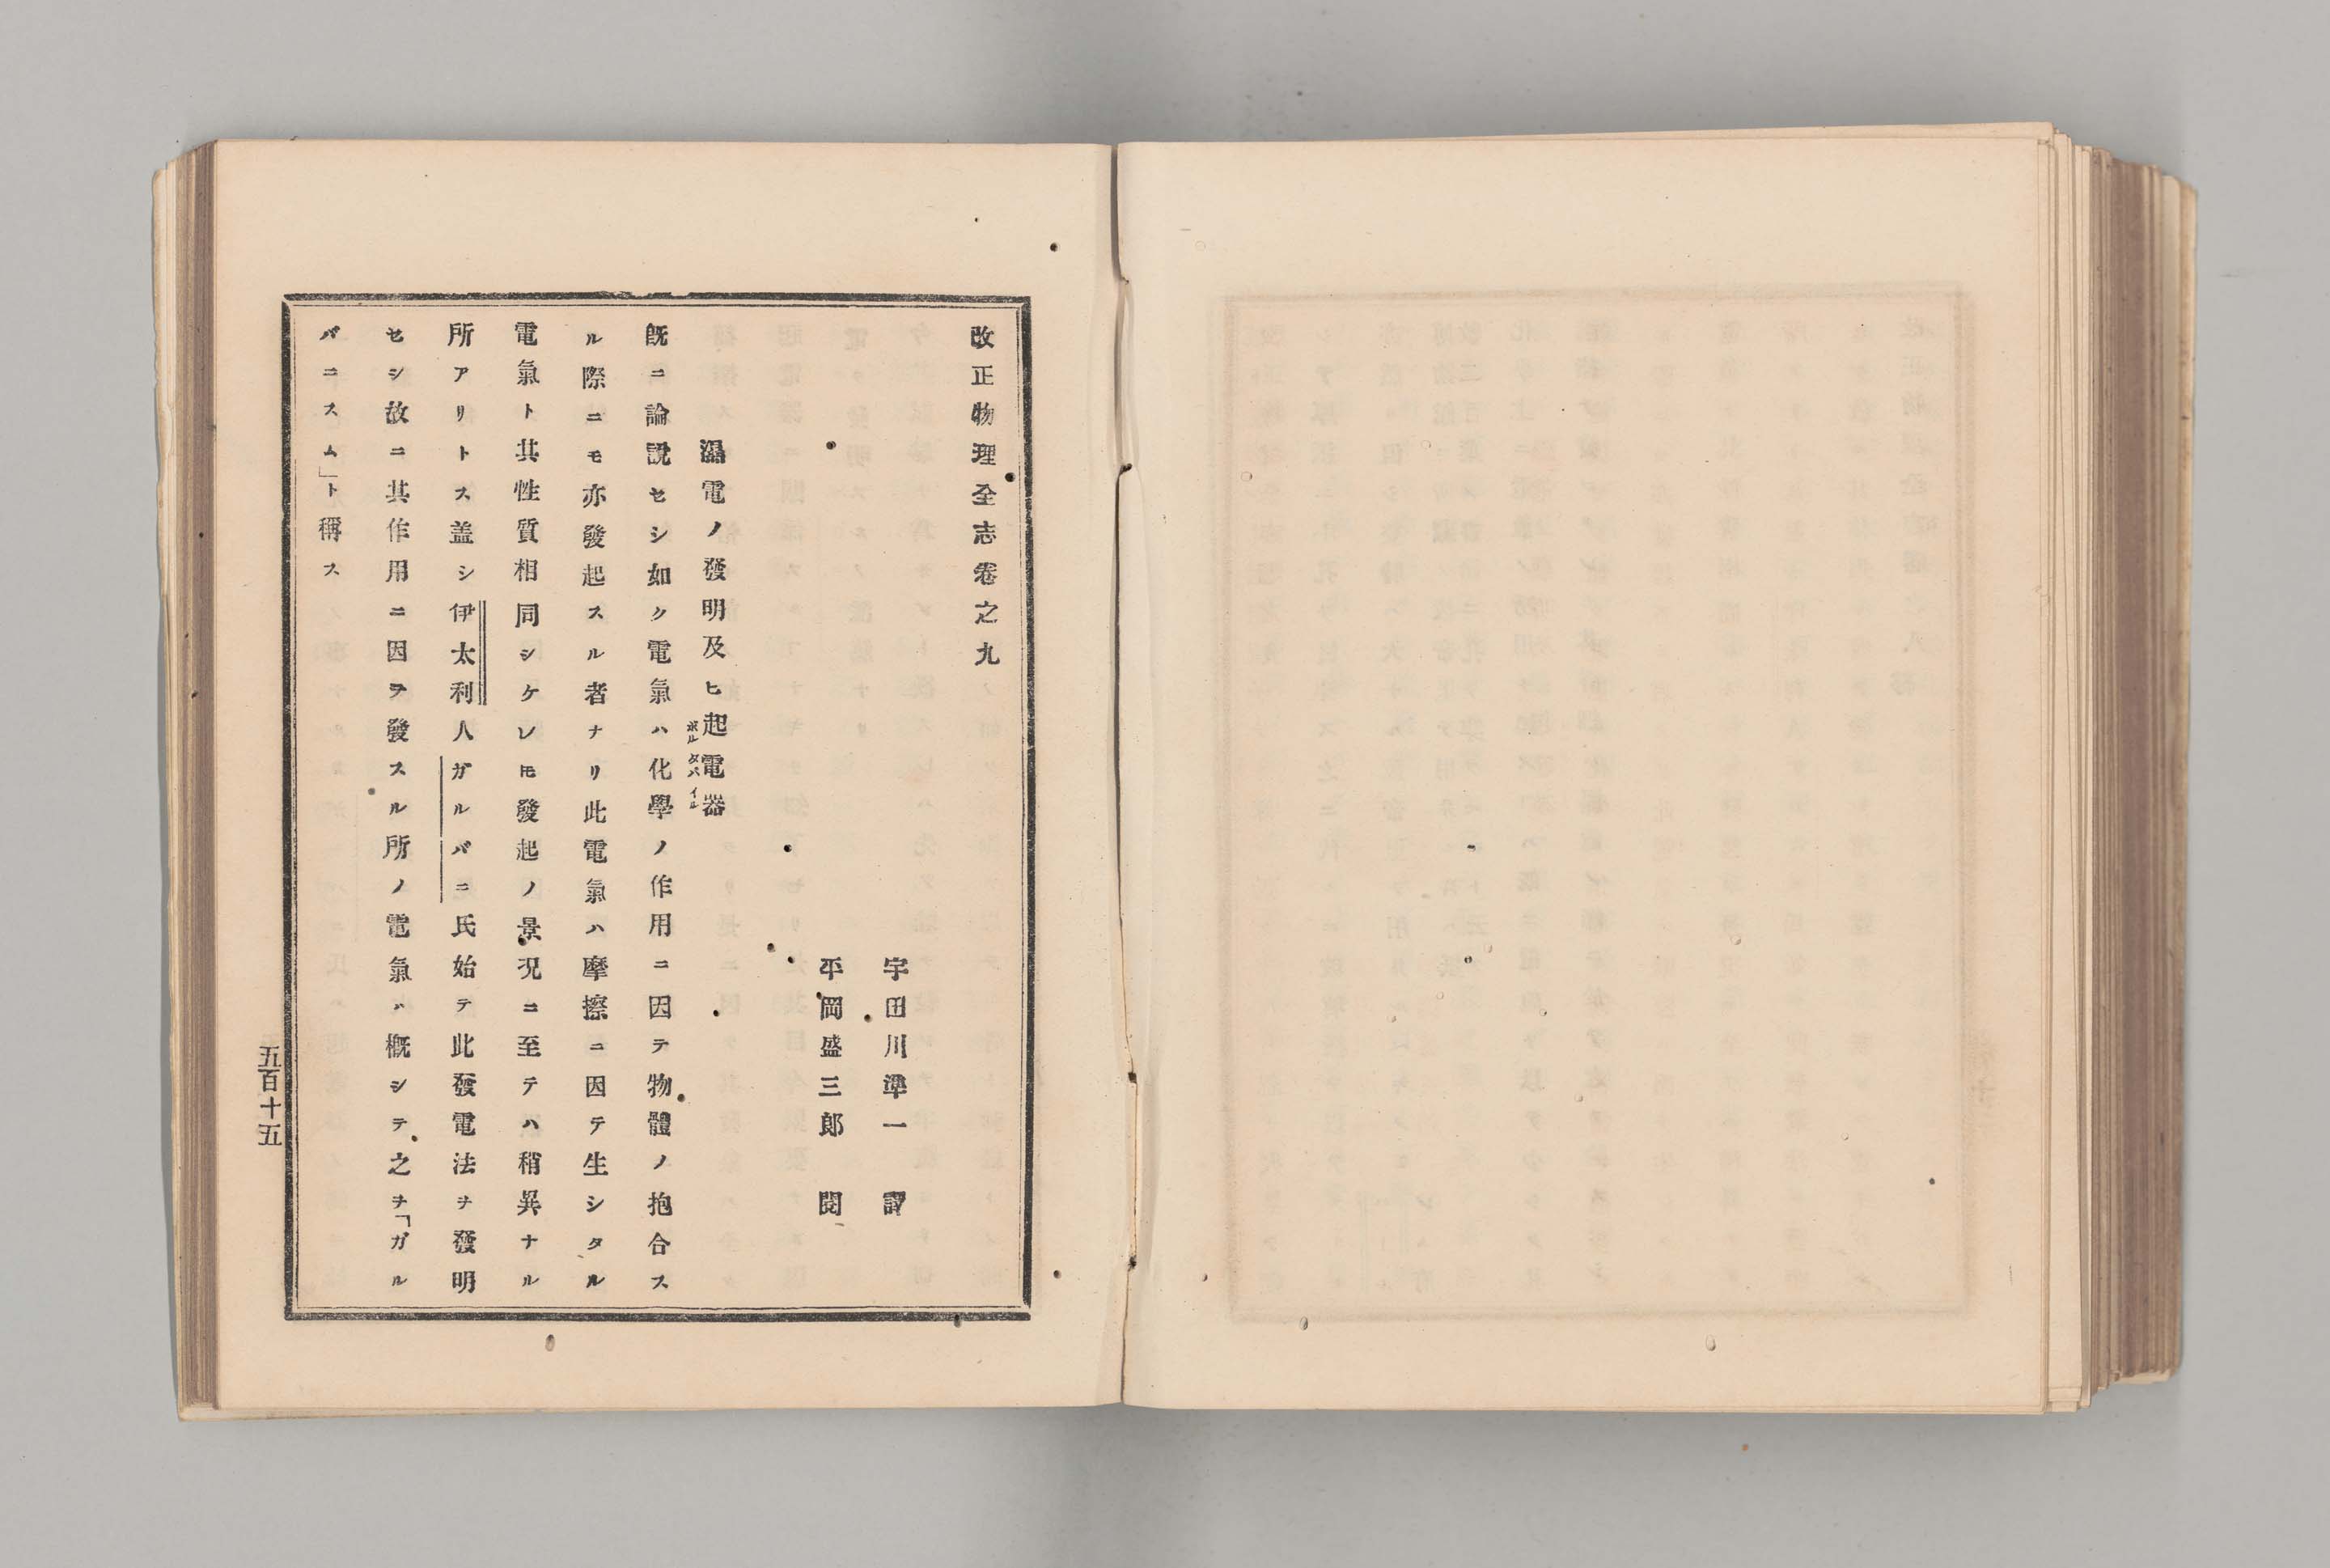 改正物理全志卷之九
宇田川準一 譯
平岡盛三郎 閲
濕電ノ發明及ヒ起電器
ボルタパイル
既ニ論説セシ如ク電氣ハ化學ノ作用ニ因テ物體ノ抱合ス
ル際ニモ亦發起スル者ナリ此電氣ハ摩擦ニ因テ生シタル
電氣ト其性質相同シケレ𪜈發起ノ景況ニ至テハ稍異ナル
所アリトス盖シ伊太利人ガルバニ氏始テ此發電法ヲ發明
セシ故ニ其作用ニ因ヲ發スル所ノ電氣ハ概シテ之ヲ「ガル
バニスム」ト稱ス
五百十五